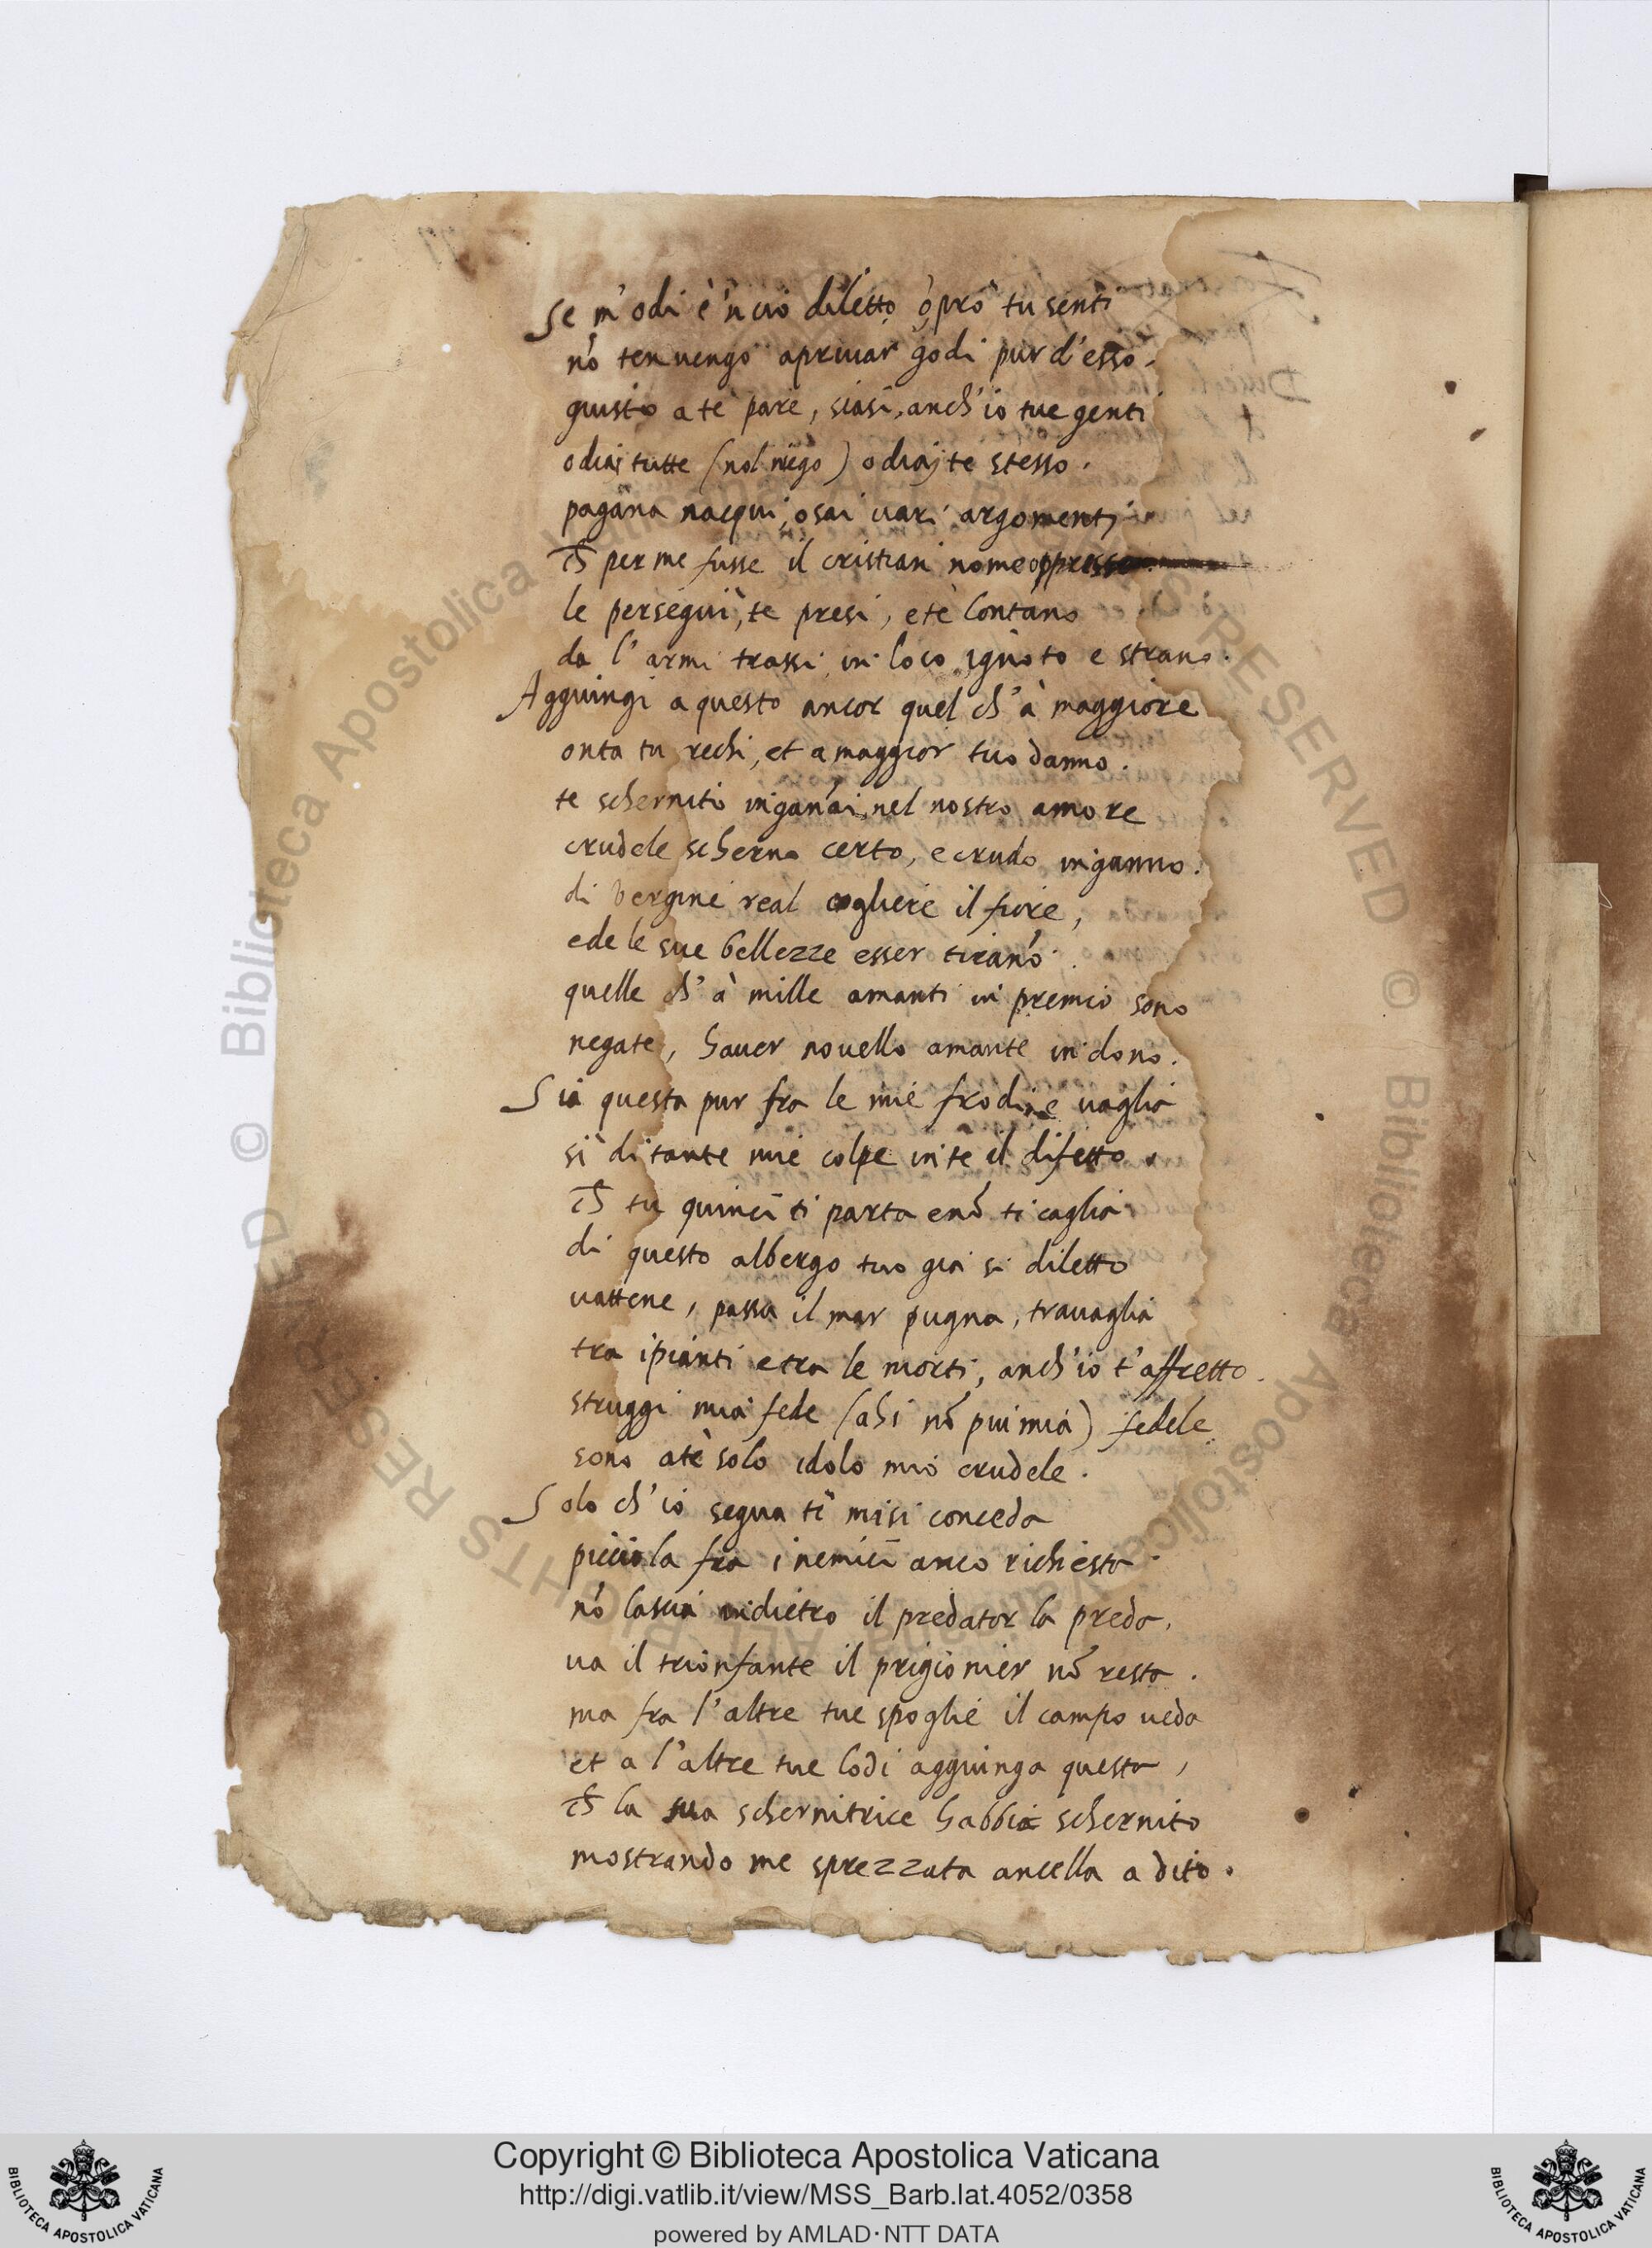 Se m'odi è 'n ciò diletto ò prò tu senti
nõ ten uengo a priuar godi pur d'esso.
giusto a te pare, siasi, anch'io tue genti
odiai tutte (nol niego) odiai te stesso.
pagana nacqui, osai uari argomenti
ch̃ per me fusse il cristian nome oppresso.
te perseguii, te presi, e te lontano
da l'armi trassi in loco ignoto e strano.
Aggiungi a questo ancor quel ch'à maggiore
onta tu rechi, et a maggior tuo danno.
te schernito inganai, nel nostro amore
crudele scherno certo, e crudo inganno.
di vergine real cogliere il fiore,
e de le sue bellezze esser tirañо.
quelle ch'à mille amanti in premio sono
negate, hauer nouello amante in dono.
Sia questa pur fra le mie frodi, e uaglia
sì di tante mie colpe in te il difetto.
ch̃ tu quinci ti parta e nõ ti caglia
di questo albergo tuo già si diletto
uattene, passa il mar pugna, trauaglia
tra i pianti e tra le morti, anch'io t'affretto.
struggi mia fede (ahi nõ piu mia) fedele
sono a te solo idolo mio crudele.
Solo ch'io segua tè mi si conceda
picciola fra i nemici anco richiesta.
nõ lascia indietro il predator la preda,
ua il trionfante il prigionier nõ resta.
ma fra l'altre tue spoglie il campo ueda
et a l'altre tue lodi aggiunga questa,
ch̃ la tua schernitrice habbia schernito
mostrando me sprezzata ancella a dito.
Copyright © Biblioteca Apostolica Vaticana
http://digi.vatlib.it/view/MSS_Barb.lat.4052/0358
powered by AMLAD·NTT DATA
BIBLIOTECA APOSTOLICA VATICANA
BIBLIOTECA APOSTOLICA VATICANA